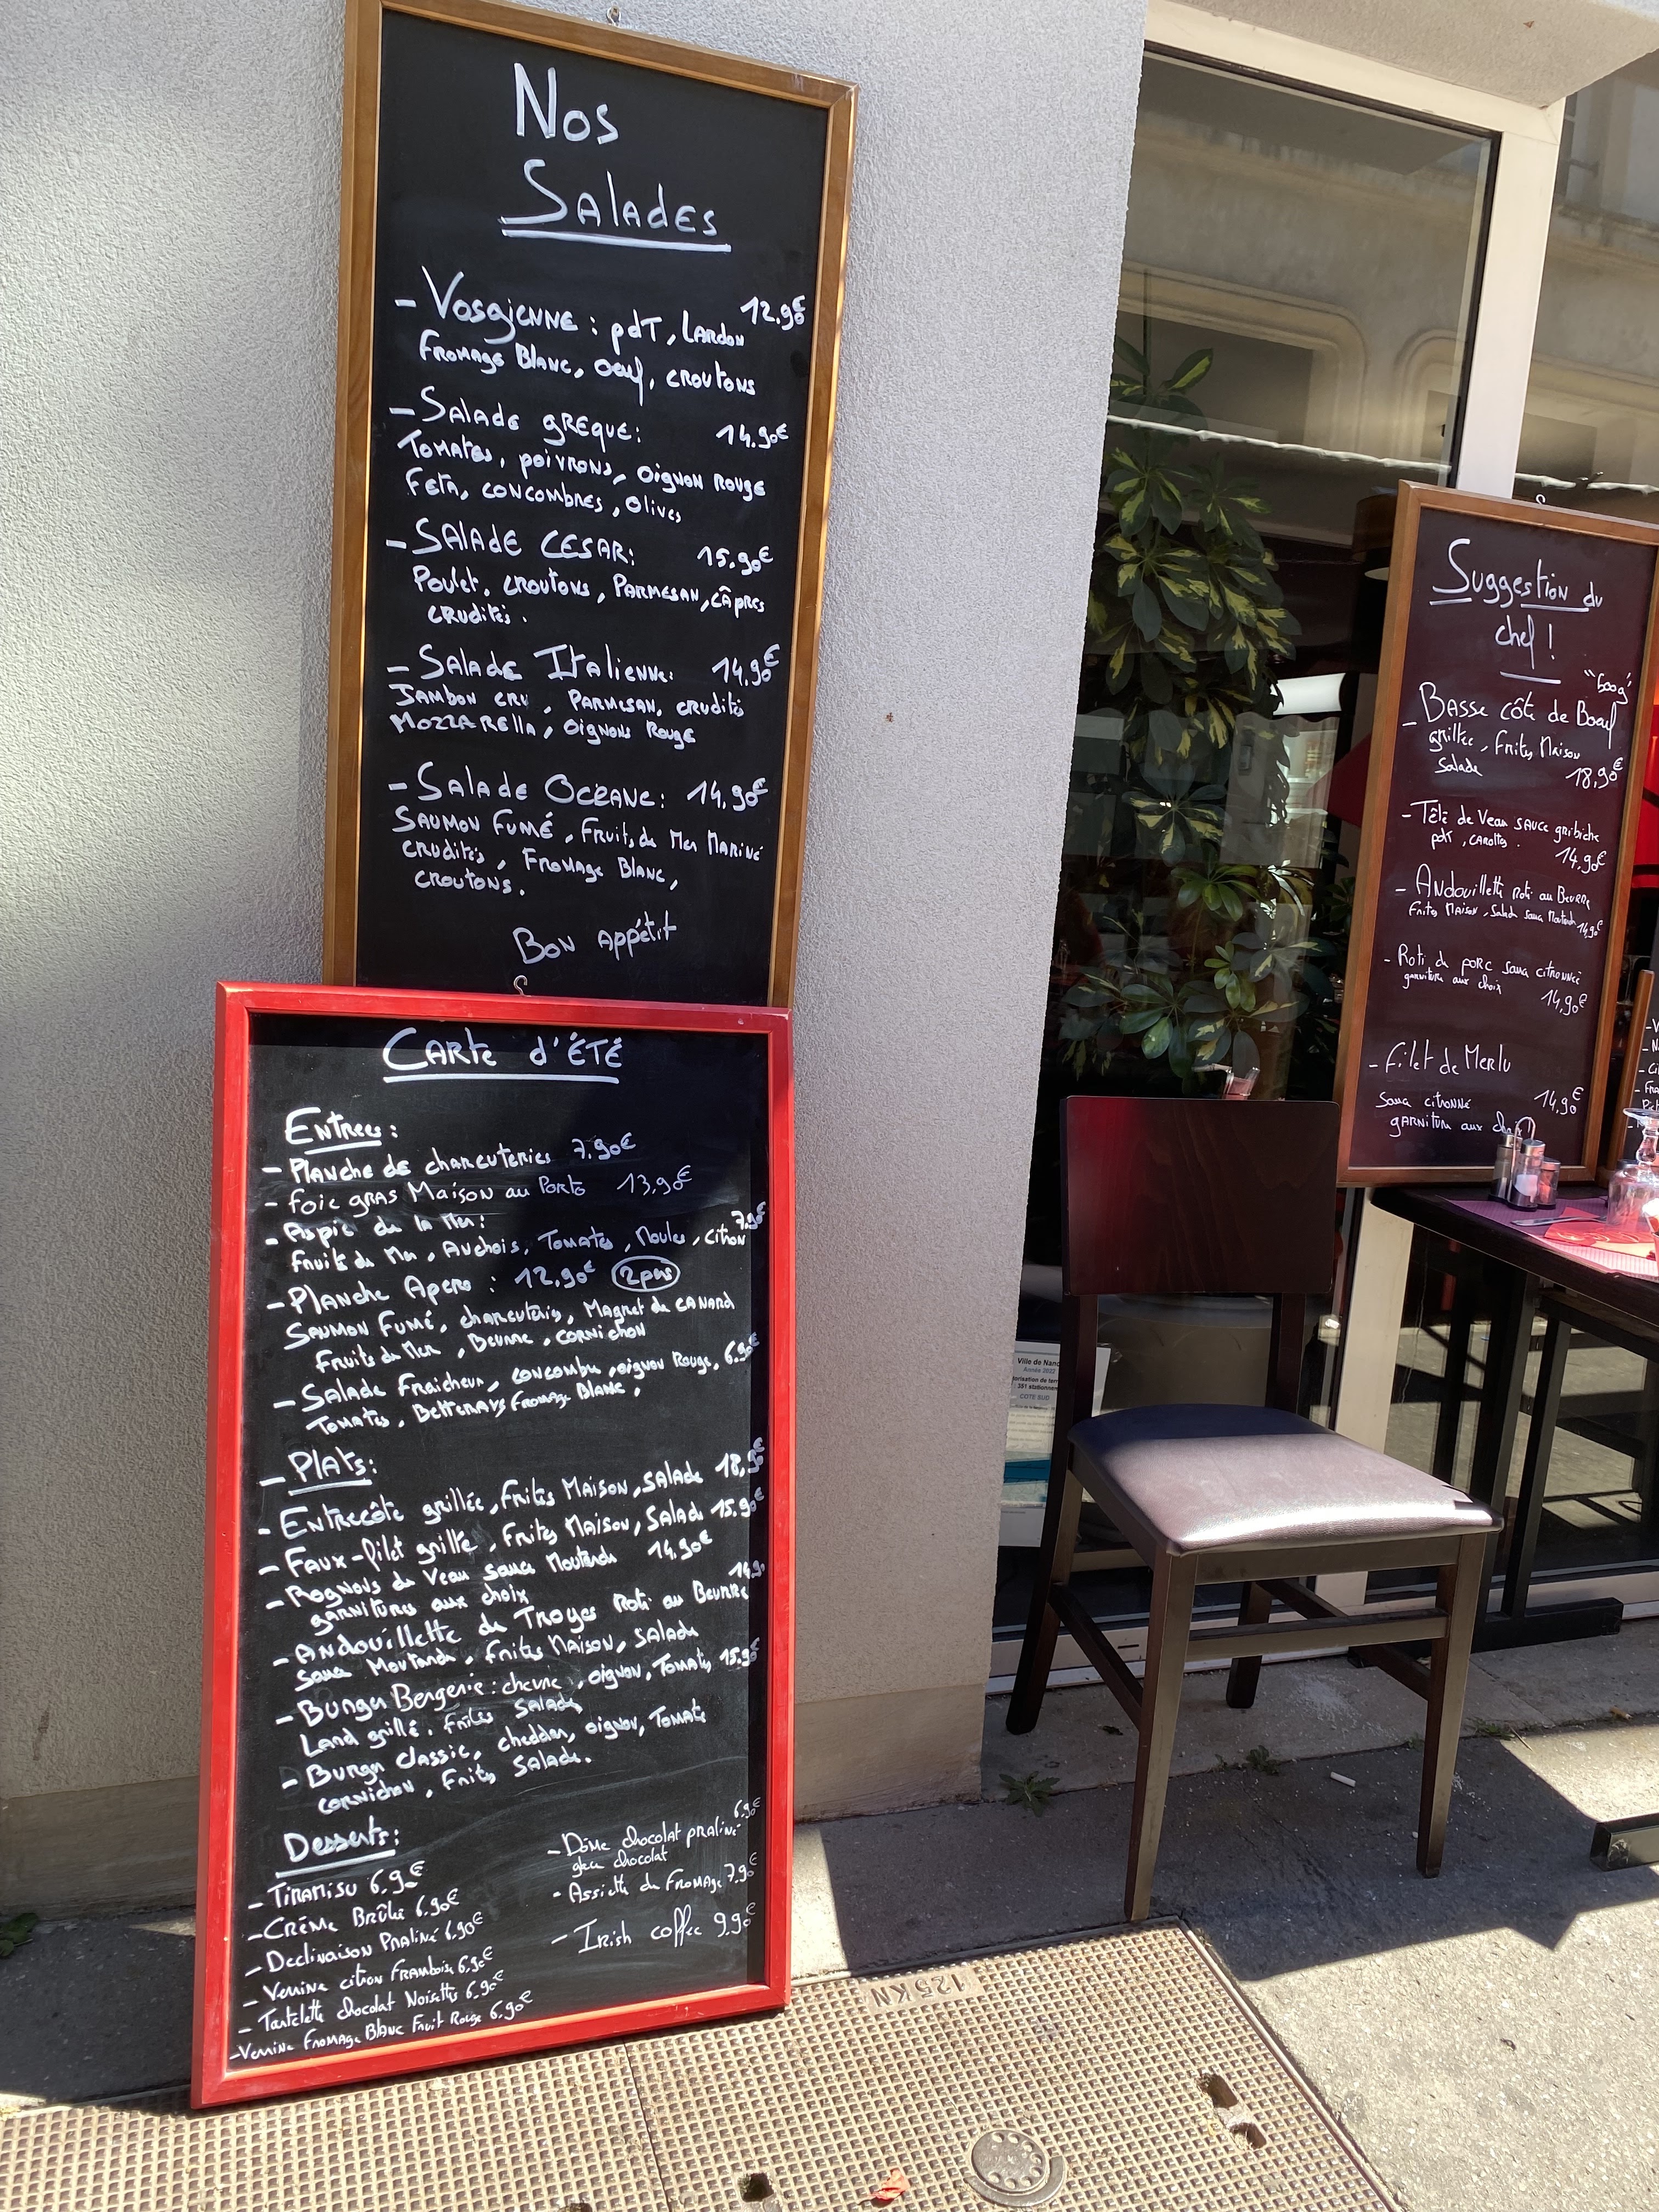 Nos
Salades
- Vosgienne : pdT, Lardon 12.90€
Fromage Blanc, oeuf, croutons
- Salade grEque: 14.90€
Tomates, poivrons, oignon rouge
Feta, concombres, Olives
- SALADE CESAR: 15.90€
Poulet, croutons, Parmesan, câpres
crudités.
- Salade Italienne: 14,90€
Jambon cru, Parmesan, crudités
Mozzarella, oignons Rouge
- Salade Oceane: 14,90€
Saumon Fumé, Fruits de Mer Mariné
crudités, Fromage Blanc,
croutons.
Bon Appétit
Carte d'ÉTÉ
Entrees:
- Planche de charcuteries 7.90€
- foie gras Maison au Porto 13,90€
- Aspic de la Mer: 7.90€
Fruits de Mer, Anchois, Tomates, Moules, citron
- Planche Apero : 12,90€ 2pers
Saumon Fumé, charcuteries, Magret de canard
Fruits de Mer, Beurre, cornichon
- Salade Fraicheur, concombre, oignon Rouge, 6.90€
Tomates, Betteraves fromage Blanc,
- Plats:
- Entrecôte grillée, Frites Maison, salade 18,90€
- Faux-filet grillé, Frites Maison, Salade 15.90€
- Rognons de Veau sauce Moutarde 14.90€
garnitures aux choix
- Andouillette de Troyes Roti au Beurre 14.90
sauce Moutarde, Frites Maison, salade
- Burger Bergerie: chevre, oignon, Tomates 15.90€
Lard grillé, Frites Salade
- Burger classic, cheddar, oignon, Tomate
cornichon, Frites Salade.
Desserts:
- Tiramisu 6,90€
- Crème Brûlée 6.90€
- Declinaison Praliné 6,90€
- Verrine citron Framboise 6.90€
- Tartelette chocolat Noisettes 6.90€
- Verrine Fromage Blanc Fruit Rouge 6.90€
- Dôme chocolat praliné 6.90€
glace chocolat
- Assiette de Fromage 7.90€
- Irish coffee 9.90€
Suggestion du
chef !
- Basse côte de Boeuf "600g"
grillée, Frites Maison
Salade 18,90€
- Tête de Veau sauce gribiche
pdt, carottes. 14,90€
- Andouillette Roti au Beurre
Frites Maison, Salade sauce Moutarde 14,90€
- Roti de porc sauce citronnée
garniture aux choix 14,90€
- Filet de Merlu
Sauce citronné 14,90€
garniture aux choix
Ville de Nanc
Année 2022
351 stationnem
COTE SUD
125KN